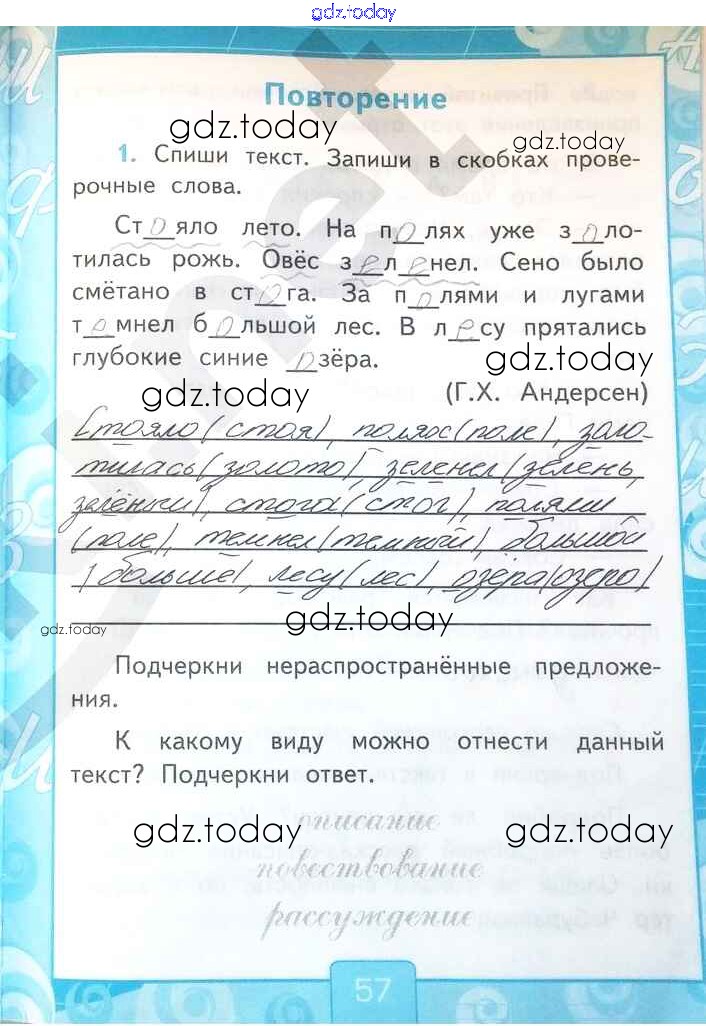 gdz.today
Повторение
gdz.today
gdz.today
1. Спиши текст. Запиши в скобках прове-
рочные слова.
Стояло лето. На полях уже золо-
тилась рожь. Овёс зеленел. Сено было
смётано в стога. За полями и лугами
темнел большой лес. В лесу прятались
глубокие синие озёра.
gdz.today
gdz.today
(Г.Х. Андерсен)
Стояло (стоя), полях (поле), золо-
тилась (золото), зеленел (зелень,
зелёный), стога (стог), полями
(поле), темнел (темный), большой
(больше), лесу (лес) озёра (озеро)
gdz.today
gdz.today
Подчеркни нераспространённые предложе-
ния.
К какому виду можно отнести данный
текст? Подчеркни ответ.
gdz.today
описание
gdz.today
повествование
рассуждение
57